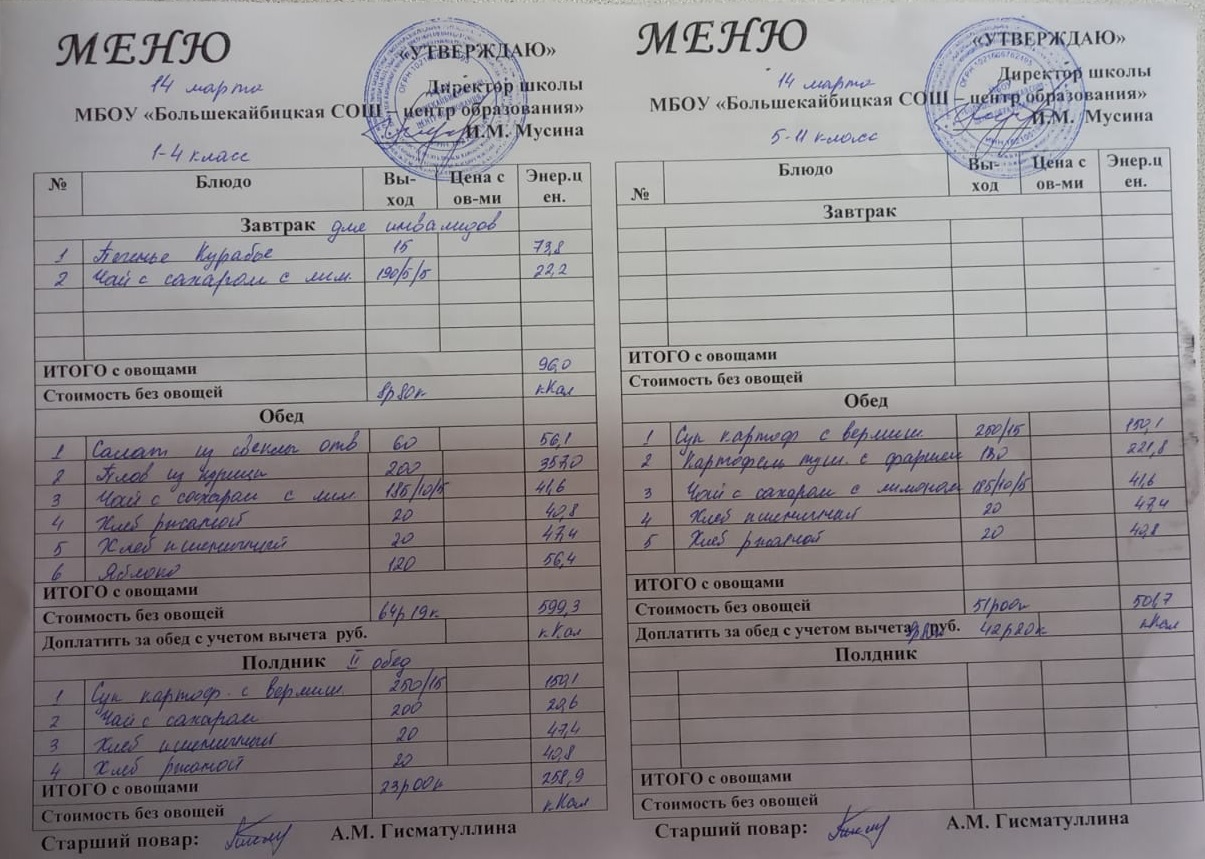 МЕНЮ
«УТВЕРЖДАЮ»
14 марта
Директор школы
МБОУ «Большекайбицкая СОШ – центр образования»
И.М. Мусина
1-4 класс
№ Блюдо Вы-ход Цена с ов-ми Энер.ц ен.
Завтрак для инвалидов
1 Печенье Курабье 15 73,8
2 Чай с сахаром с лим. 190/5/5 22,2
ИТОГО с овощами 96,0
Стоимость без овощей 8р80к кКал
Обед
1 Салат из свеклы отв 60 56,1
2 Плов из курицы 200 357,0
3 Чай с сахаром с лим. 185/10/5 41,6
4 Хлеб ржаной 20 40,8
5 Хлеб пшеничный 20 47,4
6 Яблоко 120 56,4
ИТОГО с овощами
Стоимость без овощей 64р19к 599,3
Доплатить за обед с учетом вычета руб. кКал
Полдник II обед
1 Суп картоф. с вермиш. 250/15 150,1
2 Чай с сахаром 200 20,6
3 Хлеб пшеничный 20 47,4
4 Хлеб ржаной 20 40,8
ИТОГО с овощами 23р00к 258,9
Стоимость без овощей кКал
Старший повар: А.М. Гисматуллина
МЕНЮ
«УТВЕРЖДАЮ»
14 марта
Директор школы
МБОУ «Большекайбицкая СОШ – центр образования»
И.М. Мусина
5-11 класс
№ Блюдо Вы-ход Цена с ов-ми Энер.ц ен.
Завтрак
ИТОГО с овощами
Стоимость без овощей
Обед
1 Суп картоф с вермиш. 250/15 150,1
2 Картофель туш. с фаршем 130 221,8
3 Чай с сахаром с лимоном 185/10/5 41,6
4 Хлеб пшеничный 20 47,4
5 Хлеб ржаной 20 40,8
ИТОГО с овощами
Стоимость без овощей 51р00к 501,7
Доплатить за обед с учетом вычета руб. 42р20к кКал
Полдник
ИТОГО с овощами
Стоимость без овощей
Старший повар: А.М. Гисматуллина